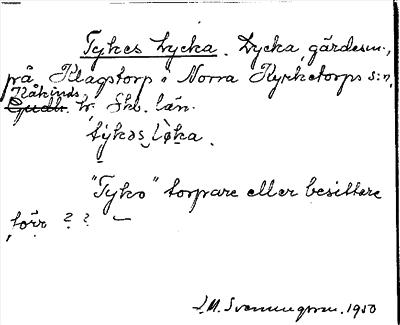 Tykes Lycka. Lycka, gärdesn.,
på Klagstorp i Norra Kyrketorps s:n,
Kåkinds
Gudh. hr. Skb. län.
týkəs løka.
"Tyko" torpare eller besittare
förr ? ? —
J.M. Svenningson. 1950